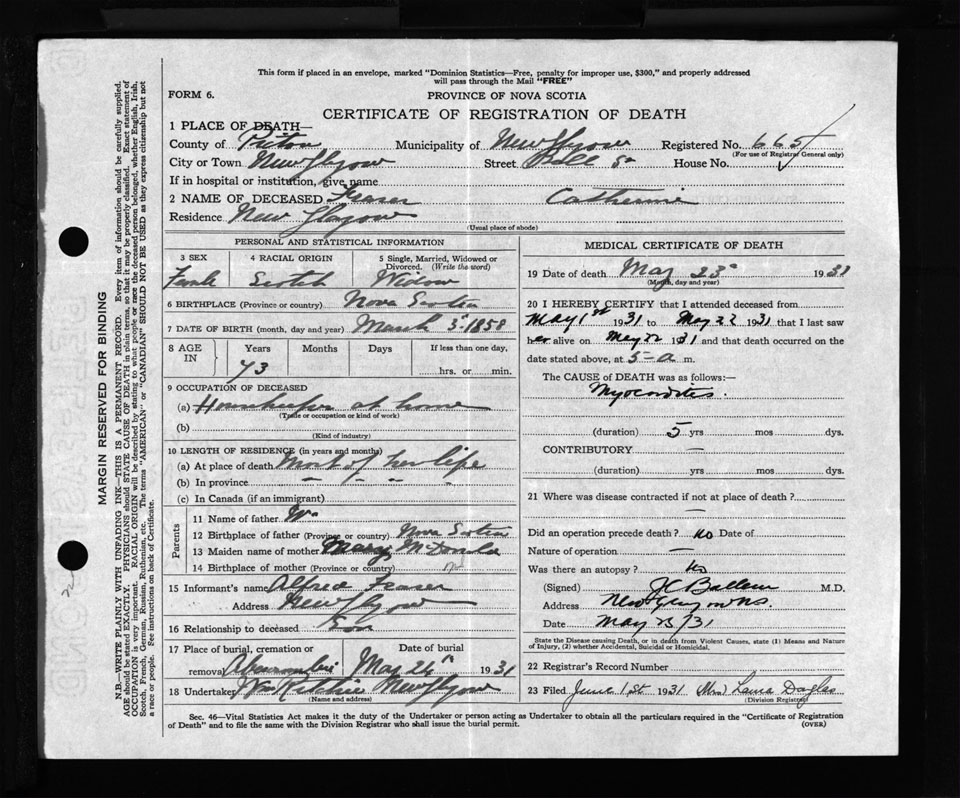 This form if placed in an envelope, marked "Dominion Statistics—Free, penalty for improper use, $300," and properly addressed
will pass through the Mail "FREE"
FORM 6.
PROVINCE OF NOVA SCOTIA
CERTIFICATE OF REGISTRATION OF DEATH
1 PLACE OF DEATH—
County of Pictou Municipality of New Glasgow Registered No. 665
(For use of Registrar General only)
City or Town New Glasgow Street House No.
If in hospital or institution, give name
2 NAME OF DECEASED Fraser Catherine
Residence New Glasgow
(Usual place of abode)
PERSONAL AND STATISTICAL INFORMATION
3 SEX 4 RACIAL ORIGIN 5 Single, Married, Widowed or
Divorced. (Write the word)
Female Scotch Widow
6 BIRTHPLACE (Province or country) Nova Scotia
7 DATE OF BIRTH (month, day and year) March 3rd 1858
8 AGE IN Years Months Days If less than one day,
73 hrs. or min.
9 OCCUPATION OF DECEASED
(a) Housekeeper at home
(Trade or occupation or kind of work)
(b)
(Kind of industry)
10 LENGTH OF RESIDENCE (in years and months)
(a) At place of death Most of her life
(b) In province " " " "
(c) In Canada (if an immigrant)
Parents
11 Name of father Wm
12 Birthplace of father (Province or country) Nova Scotia
13 Maiden name of mother Mary McDonald
14 Birthplace of mother (Province or country)
15 Informant's name Alfred Fraser
Address New Glasgow
16 Relationship to deceased Son
17 Place of burial, cremation or Date of burial
removal Abercrombie May 24th 1931
18 Undertaker Ritchie New Glasgow
(Name and address)
MEDICAL CERTIFICATE OF DEATH
19 Date of death May 23rd 1931
(Month, day and year)
20 I HEREBY CERTIFY that I attended deceased from
May 1st 1931 to May 22 1931 that I last saw
her alive on May 22 1931 and that death occurred on the
date stated above, at 5-a m.
The CAUSE of DEATH was as follows:—
Myocarditis.
(duration) 5 yrs mos dys.
CONTRIBUTORY —
(duration) yrs mos dys.
21 Where was disease contracted if not at place of death?
—
Did an operation precede death? no Date of
Nature of operation —
Was there an autopsy? no
(Signed) M.D.
Address New Glasgow N.S.
Date May 23/31
State the Disease causing Death, or in death from Violent Causes, state (1) Means and Nature
of Injury, (2) whether Accidental, Suicidal or Homicidal.
22 Registrar's Record Number
23 Filed June 1st 1931 (Mrs)
(Division Registrar)
Sec. 46—Vital Statistics Act makes it the duty of the Undertaker or person acting as Undertaker to obtain all the particulars required in the "Certificate of Registration
of Death" and to file the same with the Division Registrar who shall issue the burial permit. (OVER)
MARGIN RESERVED FOR BINDING
N.B.—WRITE PLAINLY WITH UNFADING INK—THIS IS A PERMANENT RECORD. Every item of information should be carefully supplied.
AGE should be stated EXACTLY. PHYSICIANS should STATE CAUSE OF DEATH in plain terms, so that it may be properly classified. Exact statement of
OCCUPATION is very important. RACIAL ORIGIN will be described by stating to what people or race the deceased person belonged, whether English, Irish,
Scotch, French, German, Russian, Ruthenian, etc. The terms "AMERICAN" or "CANADIAN" SHOULD NOT BE USED as they express citizenship but not
a race or people. See instructions on back of Certificate.